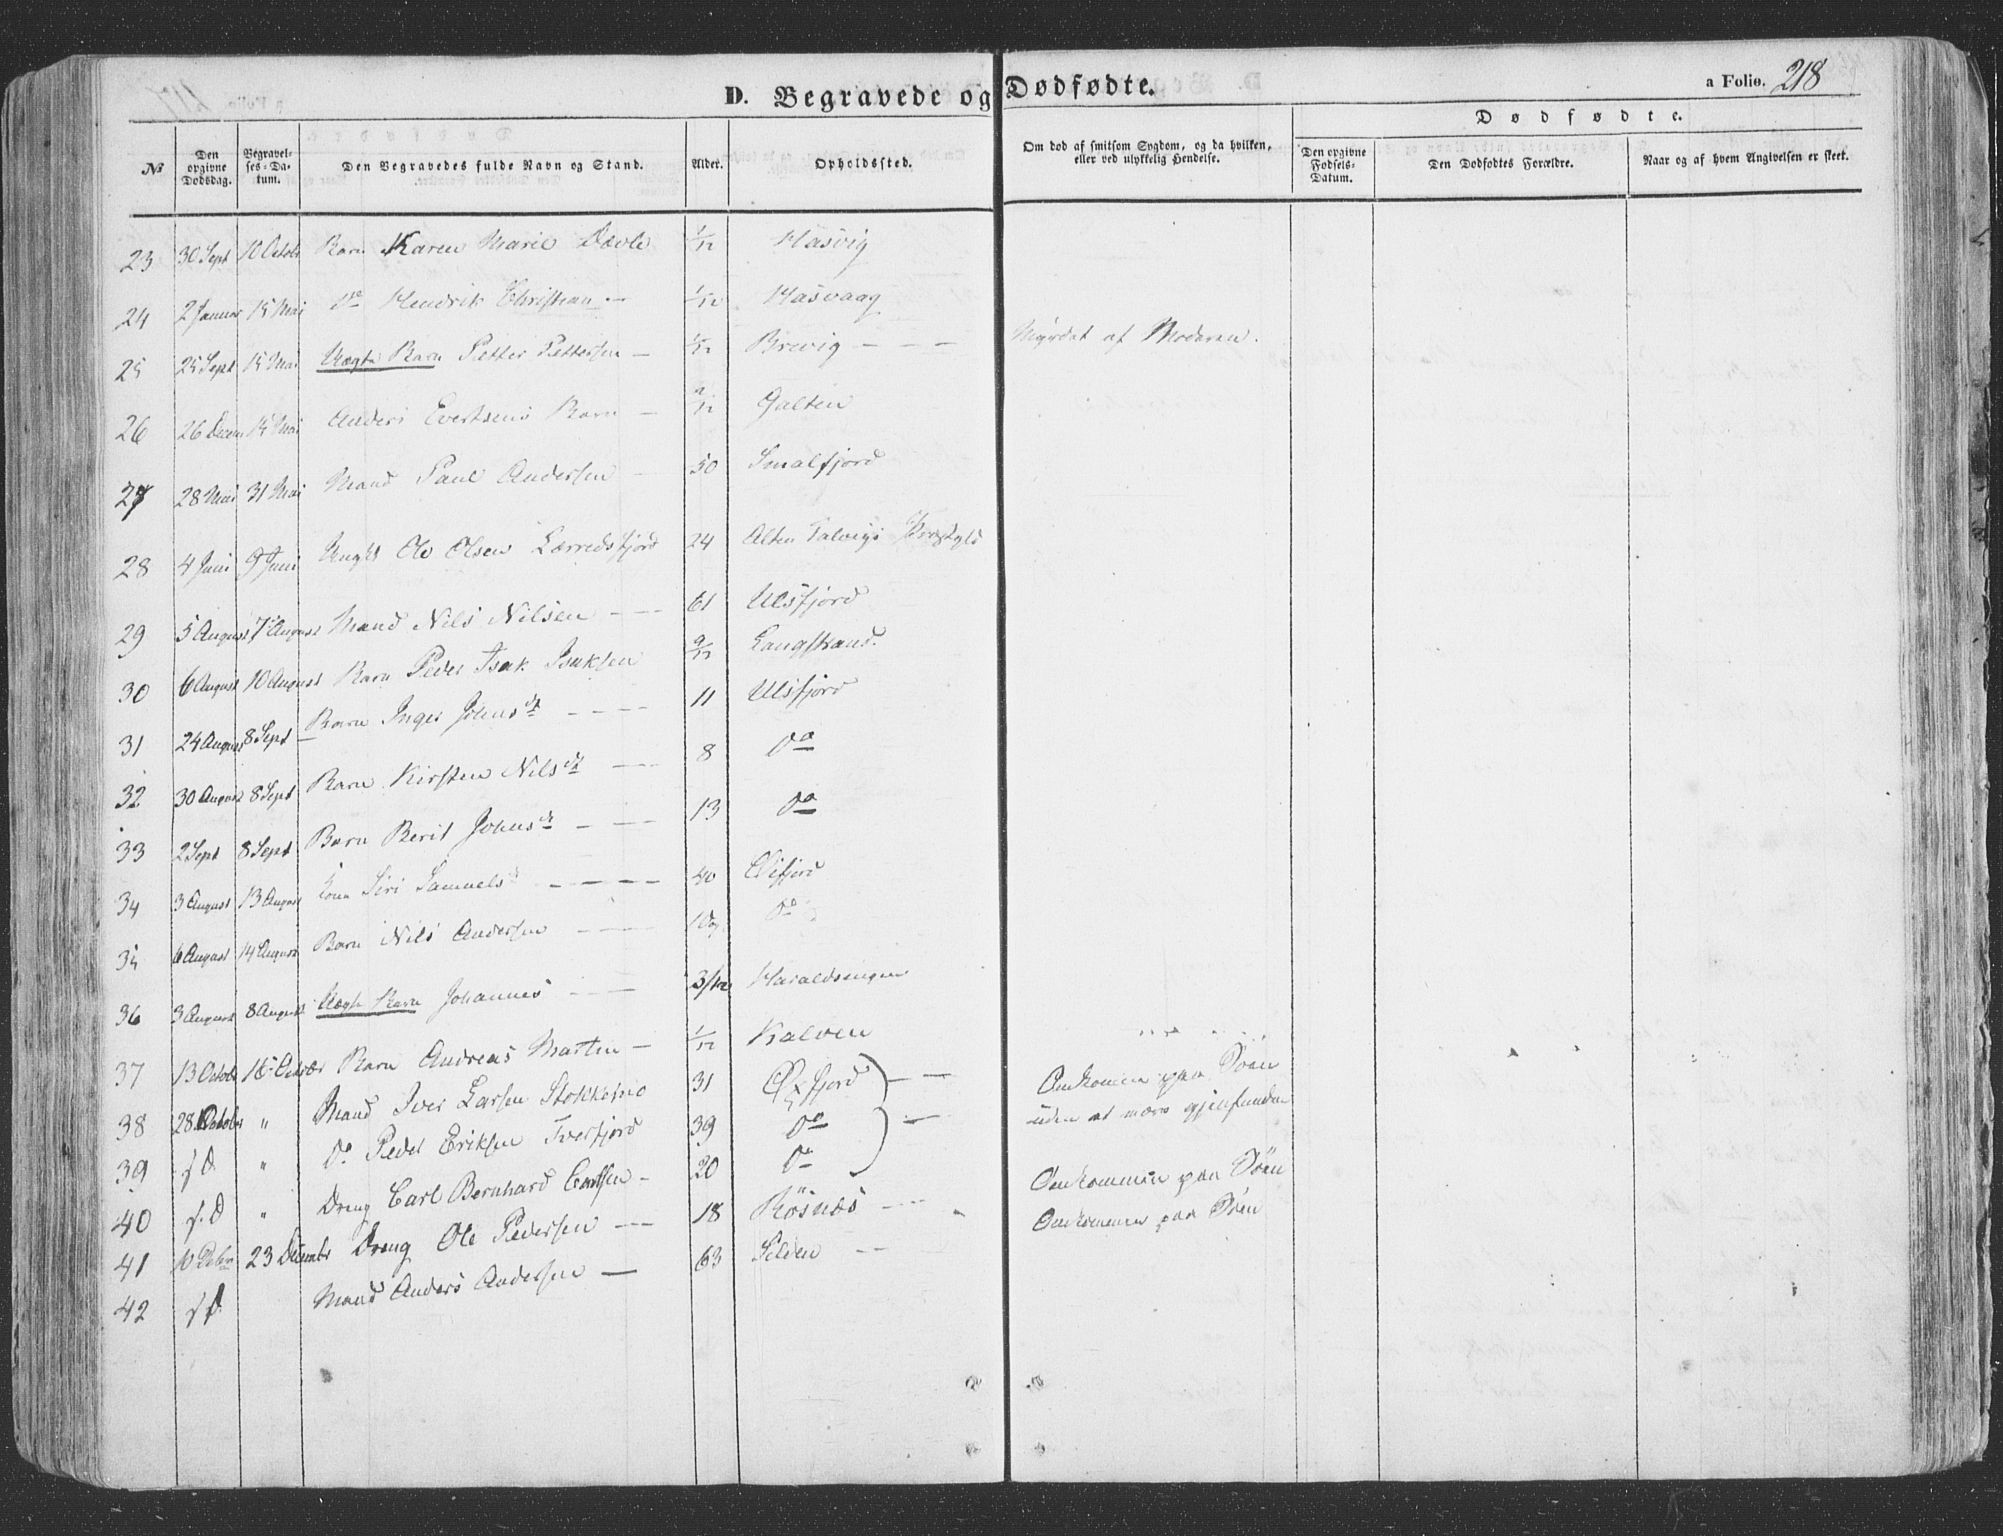 D. Begravede og Dødfødte.
a Folio. 218
Dødfødte.
№ Den opgivne Dødsdag. Begravelses-Datum. Den Begravedes fulde Navn og Stand. Alder. Opholdssted. Om død af smitsom Sygdom, og da hvilken, eller ved ulykkelig Hendelse. Den opgivne Fødsels-Datum. Den Dødfødtes Forældre. Naar og af hvem Angivelsen er skeet.
23 30 Sept 10 Octobr Barn Karen Marie Dævle 1/12 Hasvig
24 2 Januar 15 Mai Do Hendrik Christian — 1/12 Hasvaag
25 25 Sept 15 Mai Uægte Barn Petter Pettersen — 1/12 Brevig — — — Myrdet af Moderen.
26 26 Decem 15 Mai Anders Evertsens Barn — 2/12 Galten
27 28 Mai 31 Mai Mand Paul Andersen — 50 Smalfjord
28 4 Juni 9 Juni Ungkl Ole Olsen Lærredsfjord 24 Alten Talvigs Præstgld
29 5 August 7 August Mand Nils Nilsen — — — 61 Ulsfjord
30 6 August 10 August Barn Peder Isak Isaksen 9/12 Langstrand.
31 24 August 8 Sept Barn Inger Johnsdr — — — — 11 Ulsfjord
32 30 August 8 Sept Barn Kirsten Nilsdr — — — 8 Do
33 2 Sept 8 Sept Barn Berit Johnsdr — — — 13 Do
34 3 August 13 August Kone Siri Samuelsdr — — — — 40
35 6 August 14 August Barn Nils Andersen — — — 1 Dag Do
36 3 August 8 August Uægte Barn Johannes — — — 3/12 Haraldsengen
37 13 Octobr 16 Octbr Barn Andreas Martin — 1/12 Kalven
38 28 Octobr " Mand Iver Larsen Stokkemo 31 Øxfjord — — Omkommen paa Söen
39 s. D " Do Peder Eriksen Tverfjord 39 Do — uden at være gjenfunden
40 s. D " Dreng Carl Bernhard Carlsen — 20 Do Omkommen paa Söen
41 10 Decbr 23 Decembr Dreng Ole Pedersen — — 18 Rösnæs — — Omkommen paa Söen
42 s D. Mand Anders Andersen — 63 Selden — —